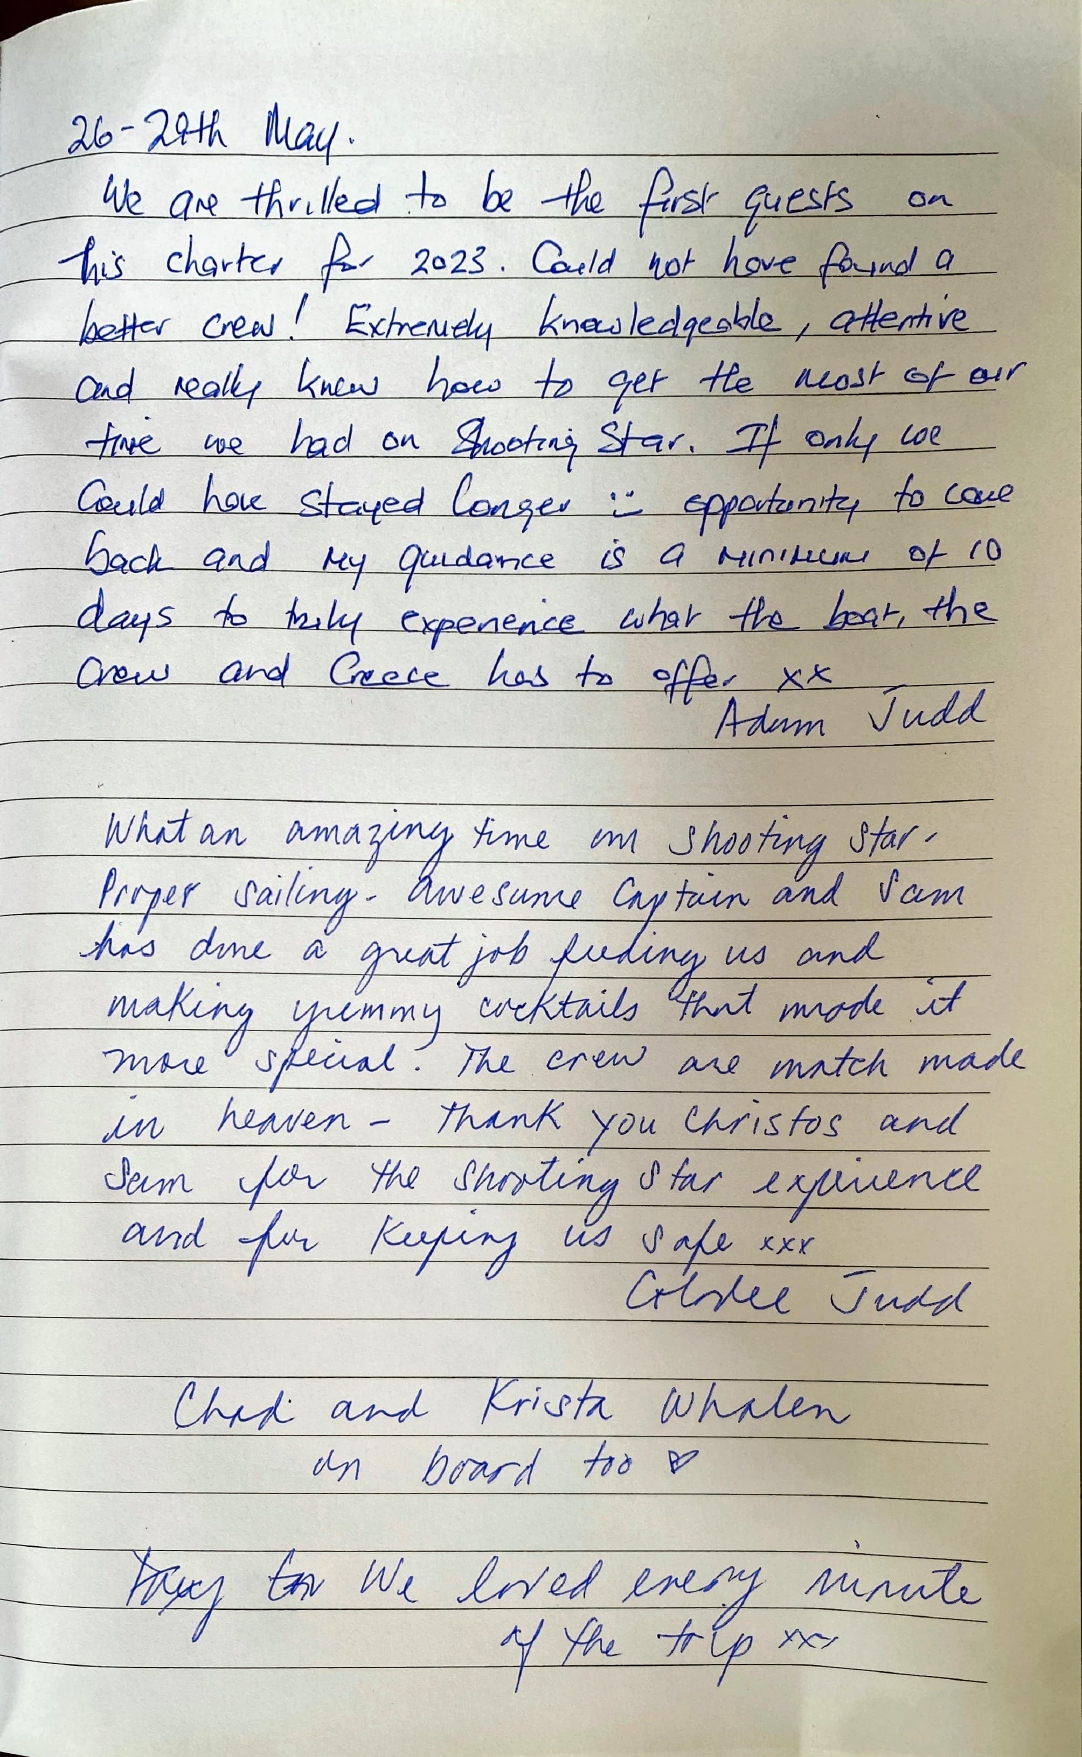 26-29th May.
We are thrilled to be the first guests on
this charter for 2023. Could not have found a
better crew! Extremely knowledgeable, attentive
and really knew how to get the most of our
time we had on Shooting Star. If only we
Could have stayed longer :- opportunity to come
back and my guidance is a minimum of 10
days to truly experience what the boat, the
Crew and Greece has to offer xx
Adam Judd
What an amazing time on Shooting Star.
Proper sailing - awesome Captain and Sam
has done a great job feeding us and
making yummy cocktails that made it
more special. The crew are match made
in heaven - thank you Christos and
Sam for the Shooting Star experience
and for keeping us safe xxx
Judd
Chadi and Krista Whalen
on board too ♡
We loved every minute
of the trip xxx